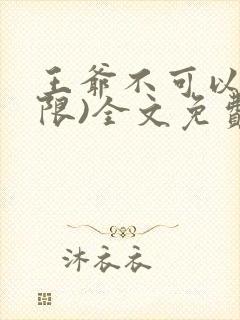 王爺不可以
限)全文免費
沐衣衣